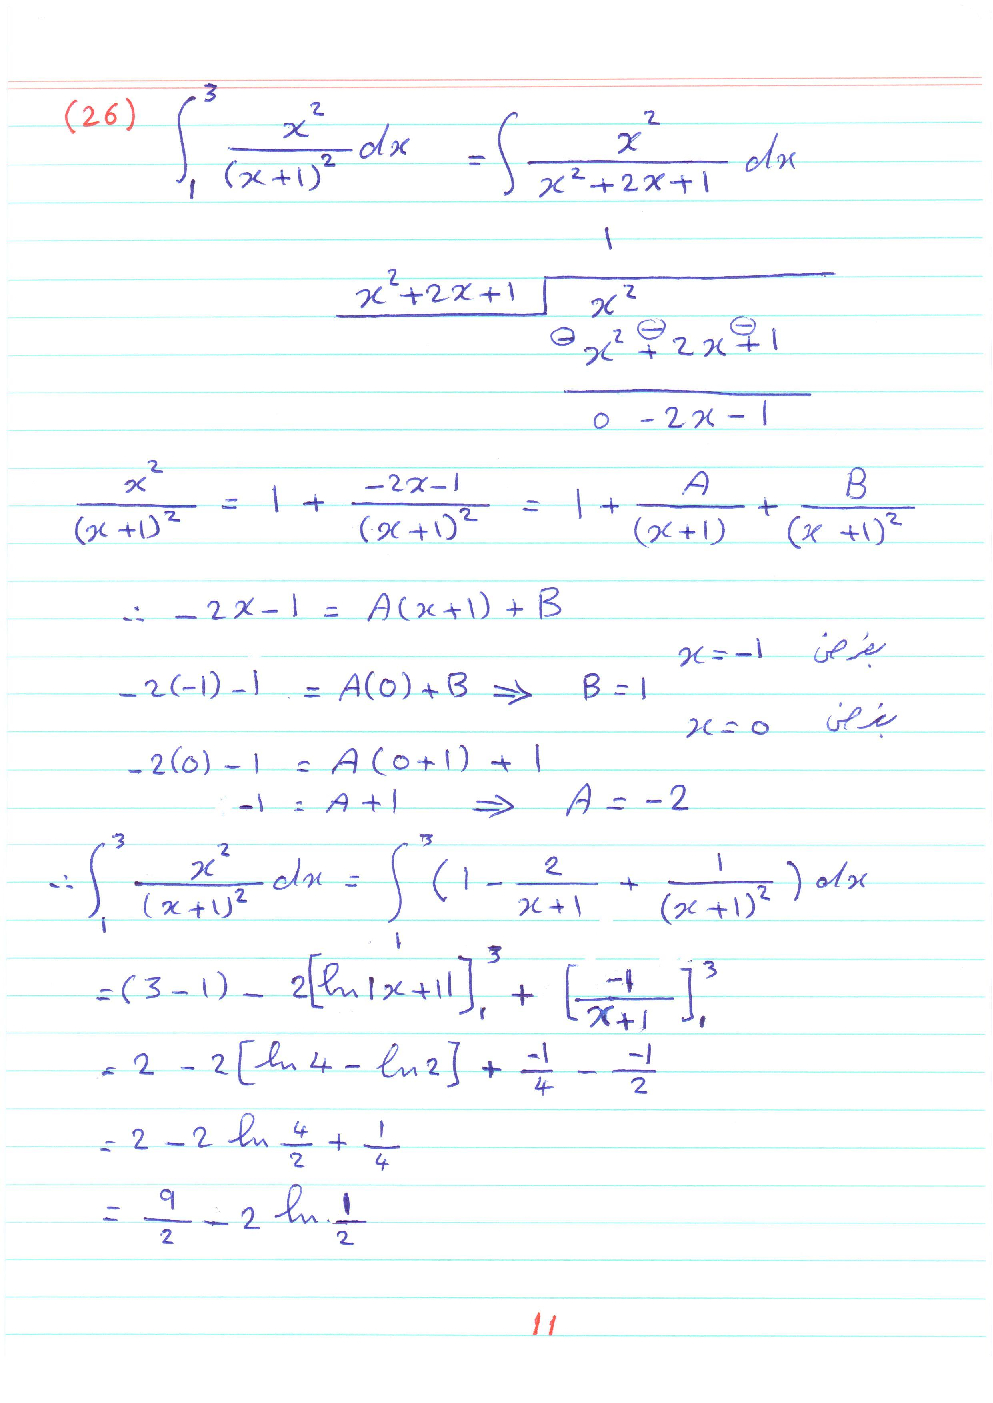 (26) ∫₁³ x²/(x+1)² dx = ∫ x²/(x²+2x+1) dx
1
x²+2x+1 | x²
⊖ x² ⊖+ 2x ⊖+ 1
0 -2x - 1
x²/(x+1)² = 1 + (-2x-1)/(x+1)² = 1 + A/(x+1) + B/(x+1)²
∴ -2x-1 = A(x+1) + B
x = -1 بفرض
-2(-1) - 1 = A(0) + B ⇒ B = 1
x = 0 بفرض
-2(0) - 1 = A(0+1) + 1
-1 = A + 1 ⇒ A = -2
∴ ∫₁³ x²/(x+1)² dx = ∫₁³ (1 - 2/(x+1) + 1/(x+1)²) dx
= (3-1) - 2[ln|x+1|]₁³ + [-1/(x+1)]₁³
= 2 - 2[ln 4 - ln 2] + -1/4 - -1/2
= 2 - 2 ln 4/2 + 1/4
= 9/2 - 2 ln 1/2
11